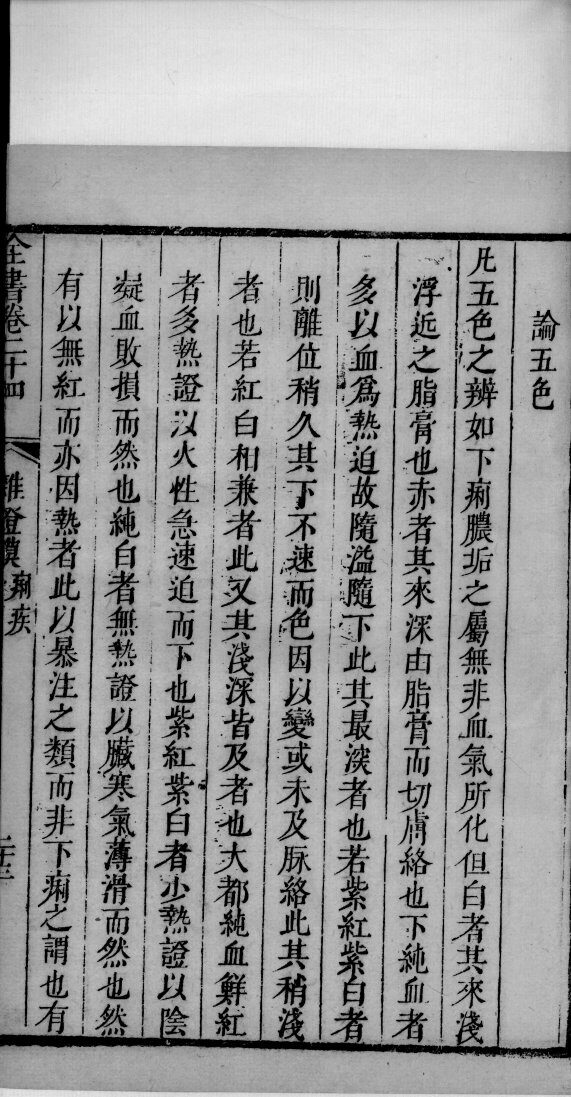 論五色
凡五色之辨如下痢膿垢之屬無非血氣所化但白者其來淺
浮近之脂膏也赤者其來深由脂膏而切膚絡也下純血者
多以血爲熱迫故隨溢隨下此其最深者也若紫紅紫白者
則離位稍久其下不速而色因以變或未及脉絡此其稍淺
者也若紅白相兼者此又其淺深皆及者也大都純血鮮紅
者多熱證以火性急速迫而下也紫紅紫白者少熱證以陰
凝血敗損而然也純白者無熱證以臟寒氣薄滑而然也然
有以無紅而亦因熱者此以暴注之類而非下痢之謂也有
全書卷二十四 雜證謨 痢疾